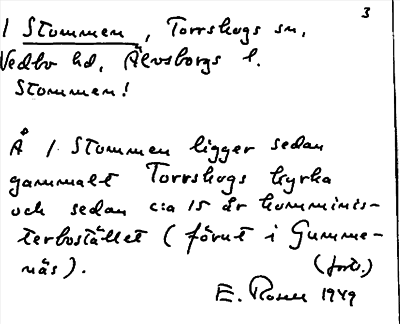 3
1 Stommen, Torrskogs sn,
Vedbo hd, Älvsborgs l.
Stommen!
Å 1 Stommen ligger sedan
gammalt Torrskogs kyrka
och sedan c:a 15 år komminis-
terbostället (förut i Gumme-
näs).
(forts.)
E. Rosell 1949